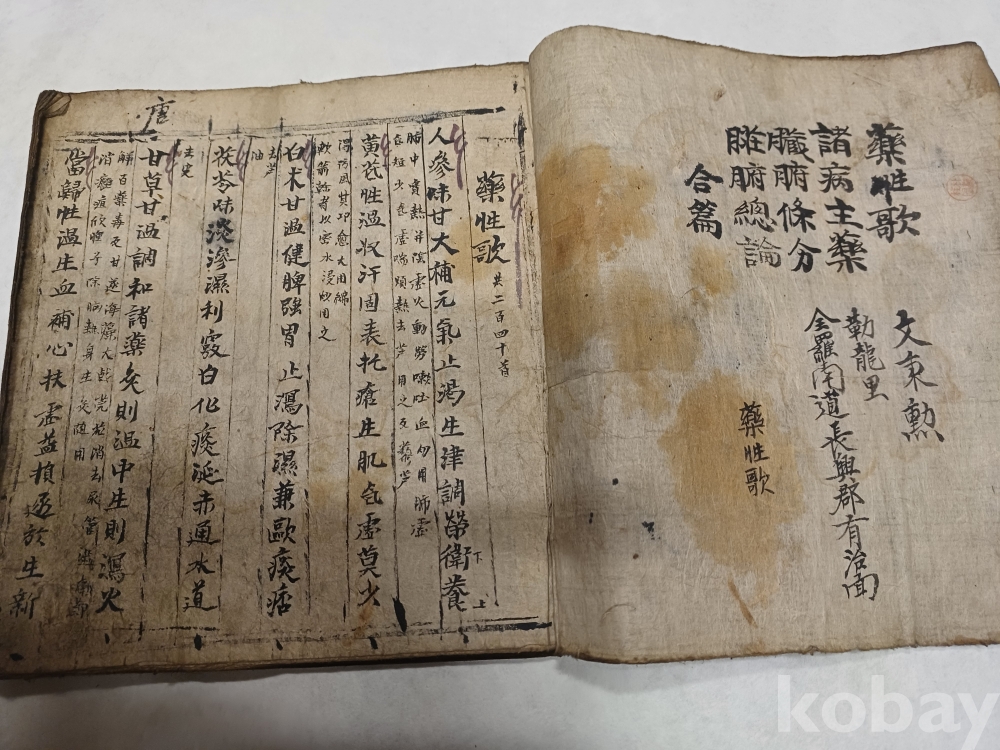 藥性歌
諸病主藥
臟腑條分
脏腑總論
合篇
文東勲
勒龍里
全羅南道長興郡有治面
藥性歌
藥性歌 共二百四十首
人參味甘大補元氣止渴生津調榮衛養
下 上
肺中實熱并陰虛火動勞嗽吐血勿用肺虛
気短少気虛喘煩熱去芦用之反藜芦
黃芪性溫收汗固表托瘡生肌気虛莫少
得防風其功愈大用綿
軟箭幹者以密水浸炒用之
白朮甘溫健脾强胃止瀉除濕兼歐痰痞
去芦
油
茯苓味淡滲濕利竅白化痰涎赤通水道
去皮
唐
甘草甘溫調和諸藥灸則溫中生則瀉火
解百藥毒反甘遂海藻大戟芫花消去
消癰疽
除胸熱身生灸隨用
當歸性溫生血補心扶虛益損逐於生新